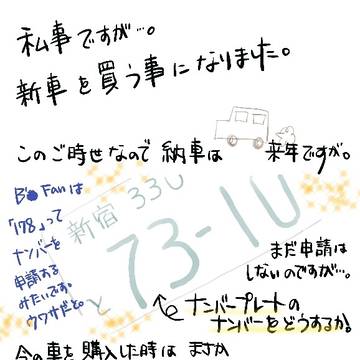 私事ですが…。
新車を買う事になりました。
このご時世なので 納車は 来年ですが。
B'z Fanは
「178」って
ナンバーを
申請する
みたいです。
ウワサだと。
新宿 330
と 73-10
まだ申請は
しないのですが…。
ナンバープレートの
ナンバーをどうするか。
今の車を購入した時は まさか